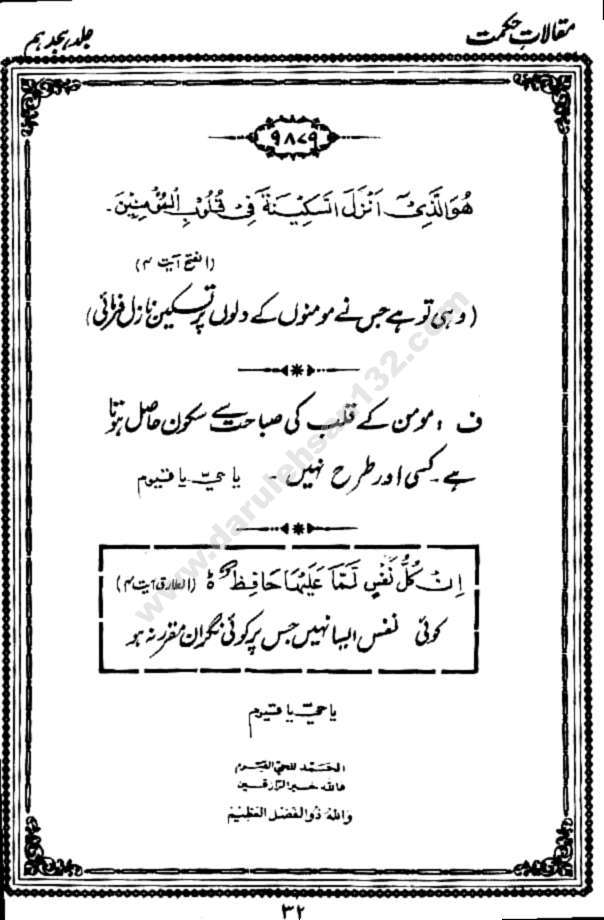 مقالاتِ حکمت
جلد ہجدہم
۹۸۷۹
هُوَ الَّذِیْۤ اَنْزَلَ السَّكِیْنَةَ فِیْ قُلُوْبِ الْمُؤْمِنِیْنَ۔
(الفتح آیت ۴)
(وہی تو ہے جس نے مومنوں کے دلوں پر تسکین نازل فرمائی)
ف : مومن کے قلب کی صباحت سے سکون حاصل ہوتا
ہے۔ کسی اور طرح نہیں۔ یا حیّ یا قیوم
اِنْ كُلُّ نَفْسٍ لَّمَّا عَلَیْهَا حَافِظٌ ؕ (الطارق آیت ۴)
کوئی نفس ایسا نہیں جس پر کوئی نگران مقرر نہ ہو
یا حیّ یا قیوم
الحَمد للحیّ القیّوم
فاللہ خیر الرازقین
وَاللهُ ذُو الفَضلِ العَظِیْم
۳۲
www.darulehsan132.com